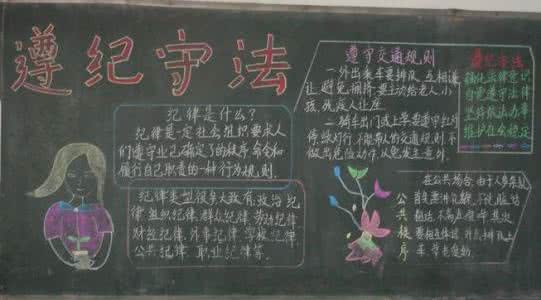 遵纪守法
纪律是什么?
纪律是一定社会组织要求人
们遵守业已确定了的秩序、命令和
履行自己职责的一种行为规则.
纪律类型很多大致有,政治纪
律,组织纪律,群众纪律,劳动纪律
财经纪律,外事纪律,学校纪律,
公共纪律、职业纪律等.
遵守交通规则
一.外出乘车要排队、互相谦
让,避免拥挤,要主动给老人,小
孩,残疾人让座
二.骑车出门或上学要遵守红灯
停,绿灯行,不能带人的交通规则.不
做出危险动作,以免发生意外.
遵纪守法
强化法律意识
自觉遵守法律
坚持依法办事
维护社会稳定
公共秩序
在公共场合,由于人多